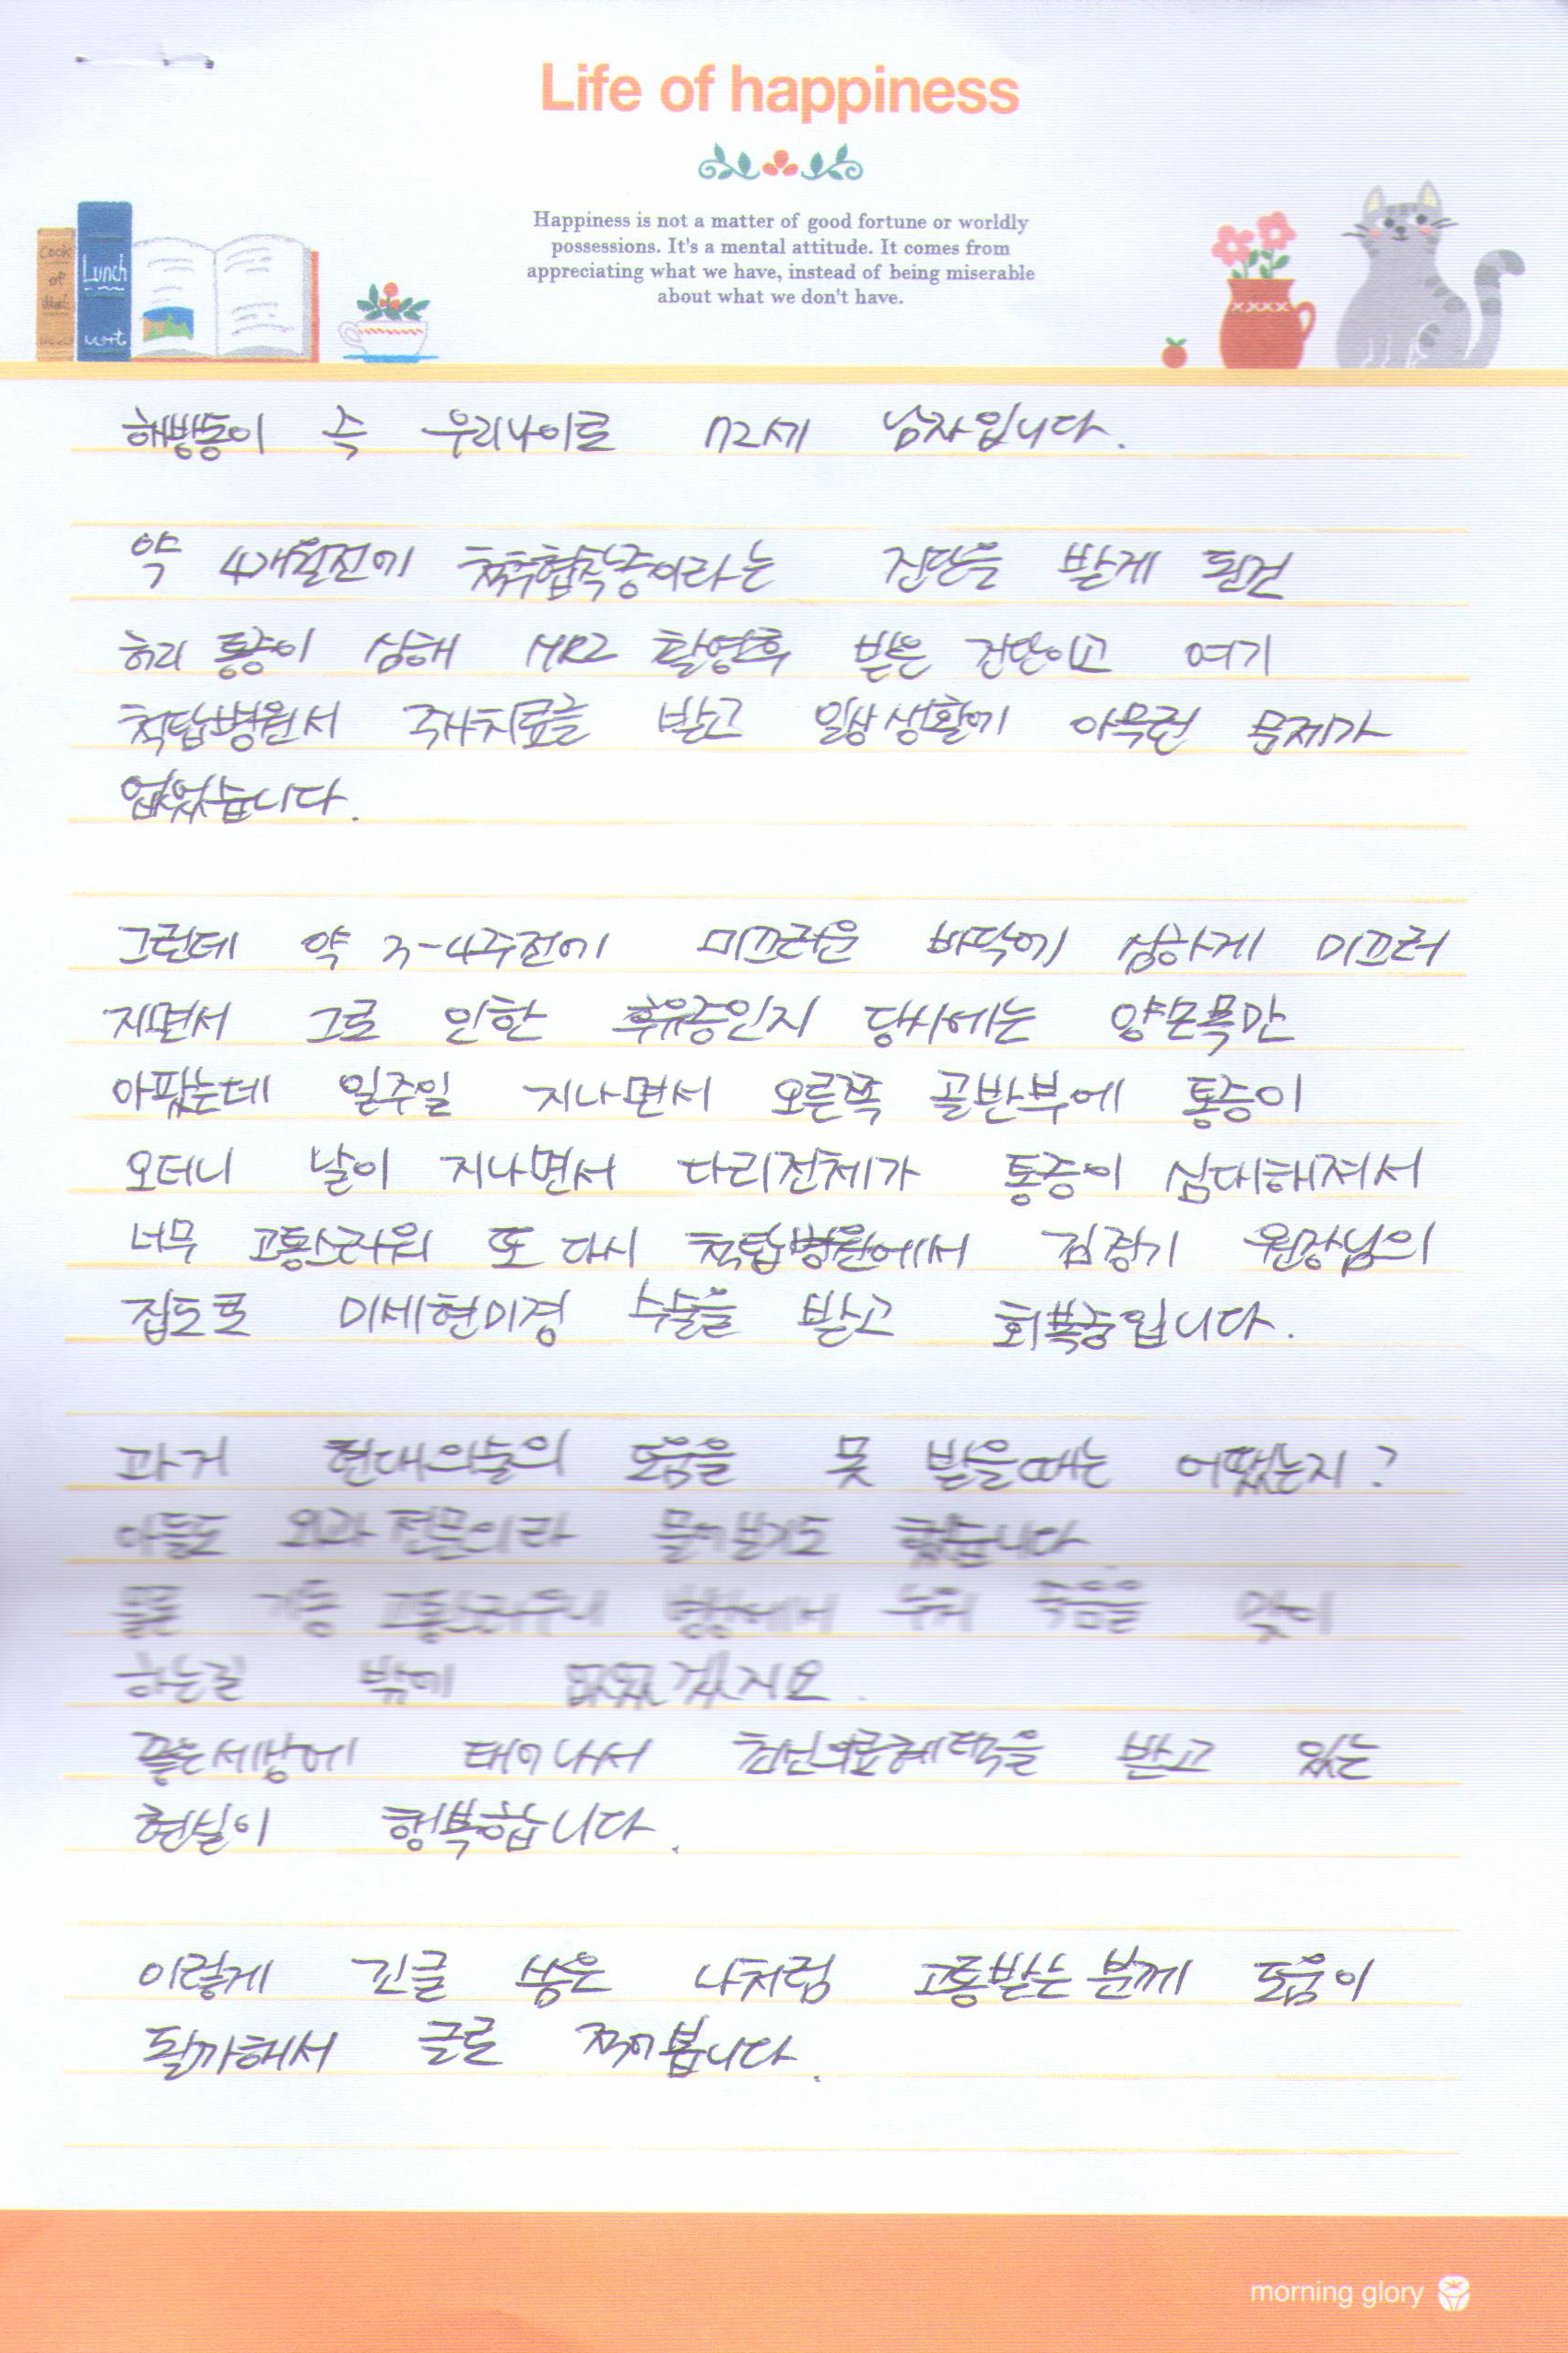 Life of happiness
Happiness is not a matter of good fortune or worldly
possessions. It's a mental attitude. It comes from
appreciating what we have, instead of being miserable
about what we don't have.
Cook
of
Lunch
해방동이 즉 우리나이로 72세 남자입니다.
약 4개월전에 척추협착증이라는 진단을 받게 된건
허리 통증이 심해 MRI 촬영후 받은 진단이고 여기
척탑병원서 주사치료를 받고 일상생활에 아무런 문제가
없었습니다.
그런데 약 3-4주전에 미끄러운 바닥에 심하게 미끄러
지면서 그로 인한 후유증인지 당시에는 양손목만
아팠는데 일주일 지나면서 오른쪽 골반부에 통증이
오더니 날이 지나면서 다리전체가 통증이 심대해져서
너무 고통스러워 또 다시 척탑병원에서 김장기 원장님의
집도로 미세현미경 수술을 받고 회복중입니다.
과거 현대의술의 도움을 못 받을때는 어땠는지?
아들도 외과전문의라 물어보기도 했습니다.
물론 거동 고통스러우니 병상에서 누워 죽음을 맞이
하는길 밖에 없었겠지요.
좋은세상에 태어나서 최선의료혜택을 받고 있는
현실이 행복합니다.
이렇게 긴글 씀은 나처럼 고통받는 분께 도움이
될까해서 글로 적어봅니다.
morning glory